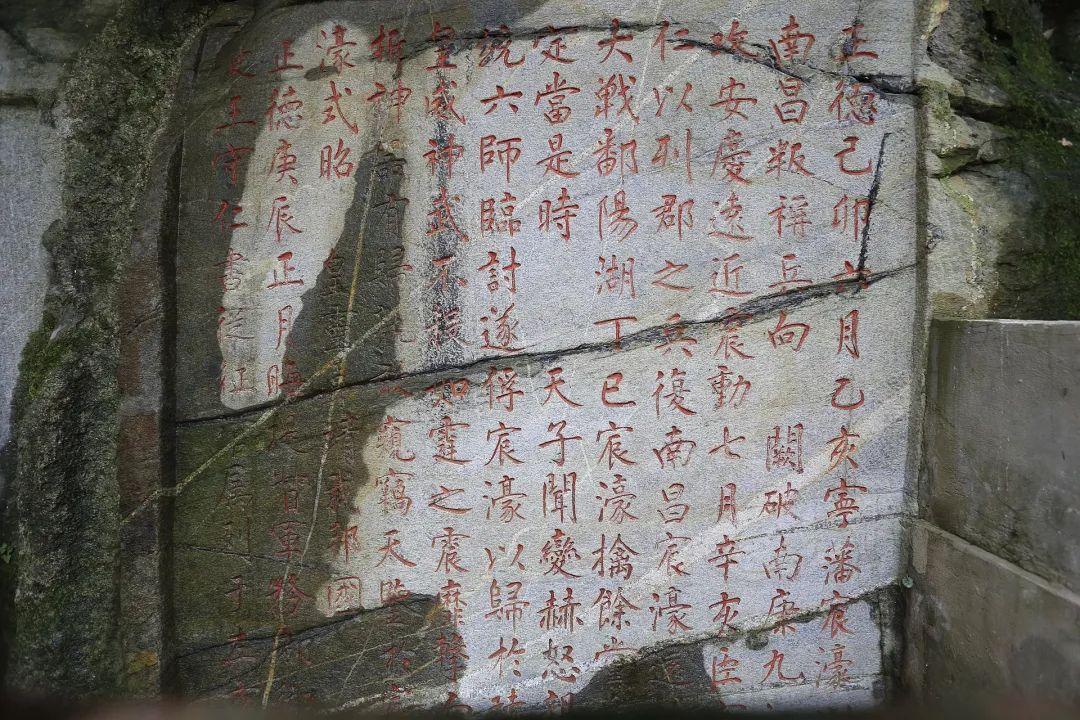 正德己卯六月乙亥寧藩宸濠
南昌叛稱兵向　闕破南康九
攻安慶遠近震動七月辛亥臣
仁以列郡之兵復南昌宸濠
大戰鄱陽湖丁巳宸濠擒餘黨
定當是時　天子聞變赫怒親
統六師臨討遂俘宸濠以歸於
皇威神武不殺如霆之震靡擊
神器有歸窺竊天鑒於
濠式昭　皇靈　靖我邦國
正德庚辰正月晦提督軍務
史王守仁書從征